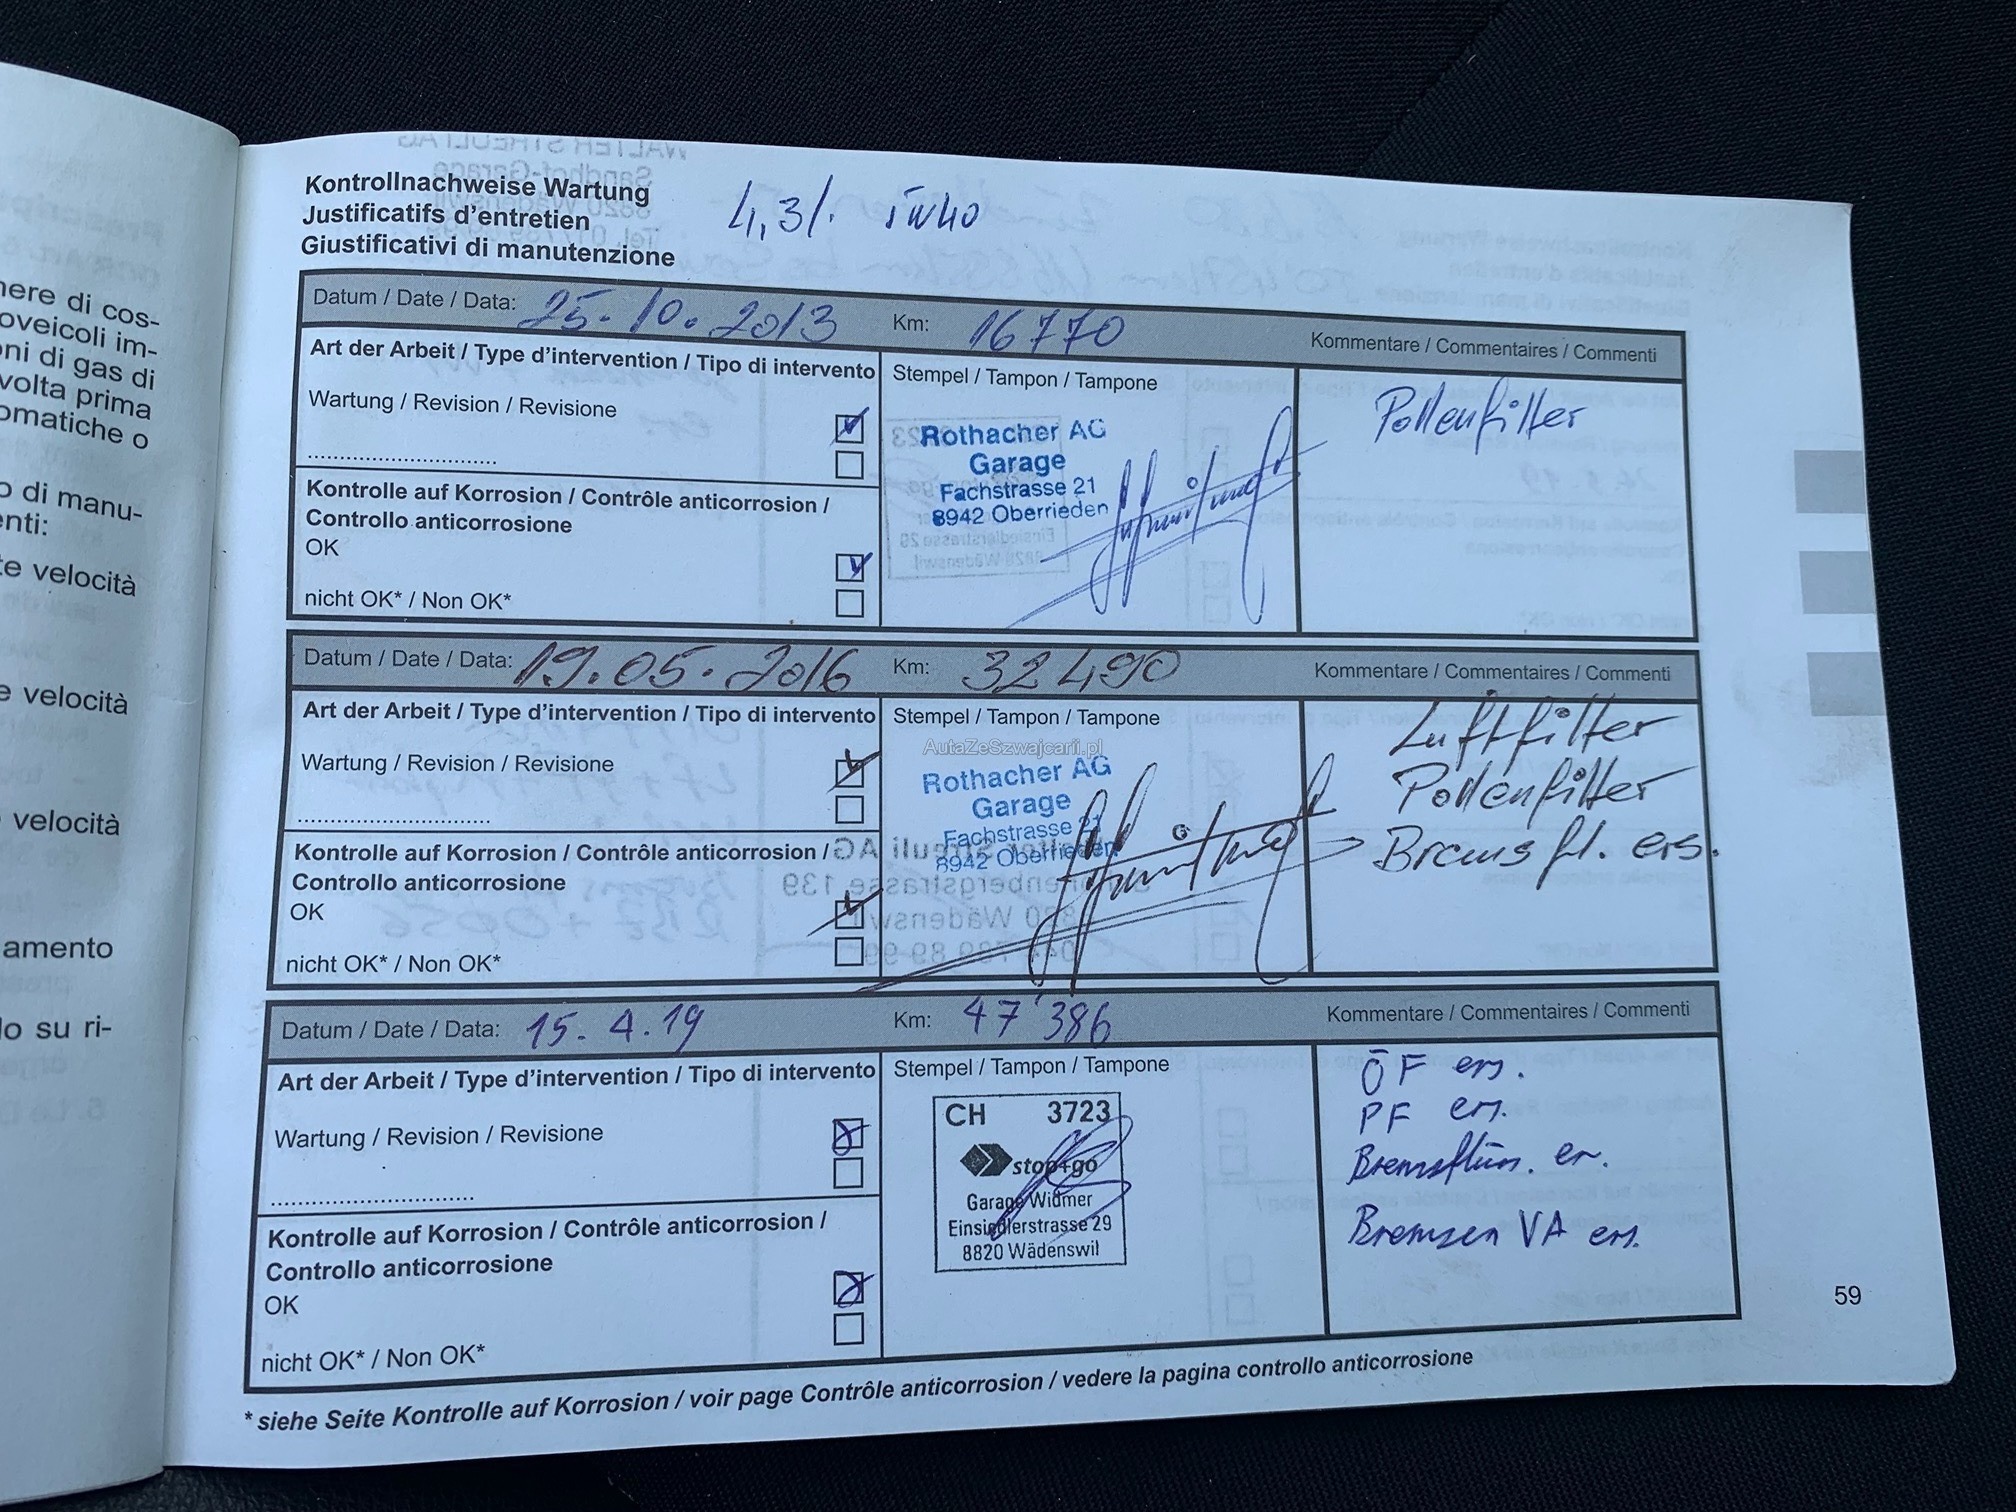 nere di cos-
oveicoli im-
oni di gas di
volta prima
omatiche o
o di manu-
enti:
te velocità
e velocità
velocità
amento
lo su ri-
WALTER STREULI AG
Sandhof-Garage
Kontrollnachweise Wartung
Justificatifs d'entretien
Giustificativi di manutenzione
4,3l. 5W40
Datum / Date / Data: 25.10.2013 Km: 16770 Kommentare / Commentaires / Commenti
Art der Arbeit / Type d'intervention / Tipo di intervento
Stempel / Tampon / Tampone
Wartung / Revision / Revisione
Pollenfilter
Rothacher AG
Garage
Fachstrasse 21
8942 Oberrieden
Kontrolle auf Korrosion / Contrôle anticorrosion /
Controllo anticorrosione
OK
nicht OK* / Non OK*
Datum / Date / Data: 19.05.2016 Km: 32490 Kommentare / Commentaires / Commenti
Art der Arbeit / Type d'intervention / Tipo di intervento
Stempel / Tampon / Tampone
AutaZeSzwajcarii.pl
Wartung / Revision / Revisione
Luftfilter
Pollenfilter
Bremsfl. ers.
Rothacher AG
Garage
Fachstrasse 21
8942 Oberrieden
Kontrolle auf Korrosion / Contrôle anticorrosion /
Controllo anticorrosione
OK
nicht OK* / Non OK*
Datum / Date / Data: 15.4.19 Km: 47'386 Kommentare / Commentaires / Commenti
Art der Arbeit / Type d'intervention / Tipo di intervento
Stempel / Tampon / Tampone
Wartung / Revision / Revisione
CH 3723
stop+go
Garage Widmer
Einsiedlerstrasse 29
8820 Wädenswil
ÖF ers.
PF ers.
Bremsflüss. er.
Bremsen VA ers.
Kontrolle auf Korrosion / Contrôle anticorrosion /
Controllo anticorrosione
OK
nicht OK* / Non OK*
* siehe Seite Kontrolle auf Korrosion / voir page Contrôle anticorrosion / vedere la pagina controllo anticorrosione
59